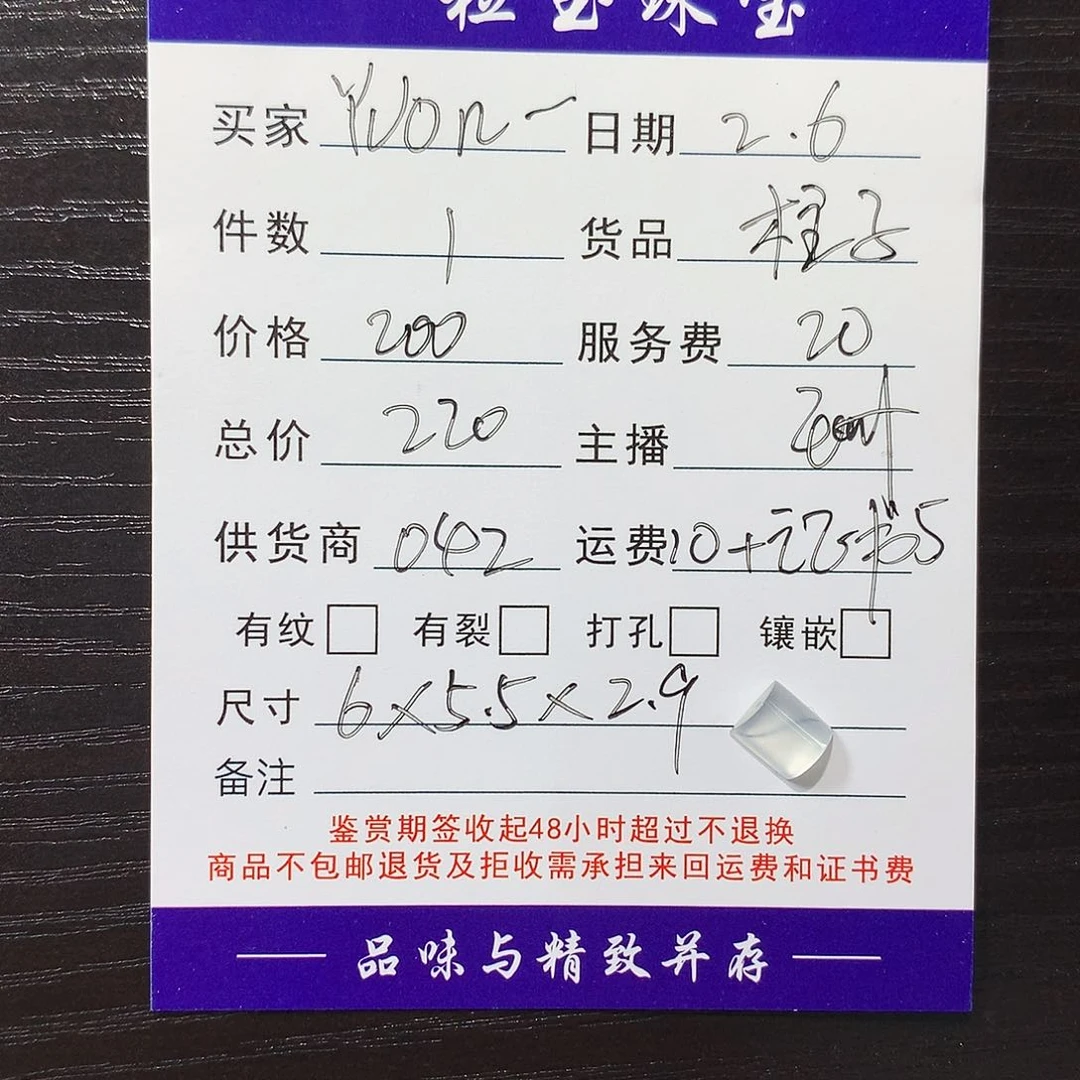 珠宝
买家 Yvon一 日期 2.6
件数 1 货品 柱子
价格 200 服务费 20
总价 220 主播
供货商 042 运费10+证书5
有纹 有裂 打孔 镶嵌
尺寸 6×5.5×2.9
备注
鉴赏期签收起48小时超过不退换
商品不包邮退货及拒收需承担来回运费和证书费
品味与精致并存